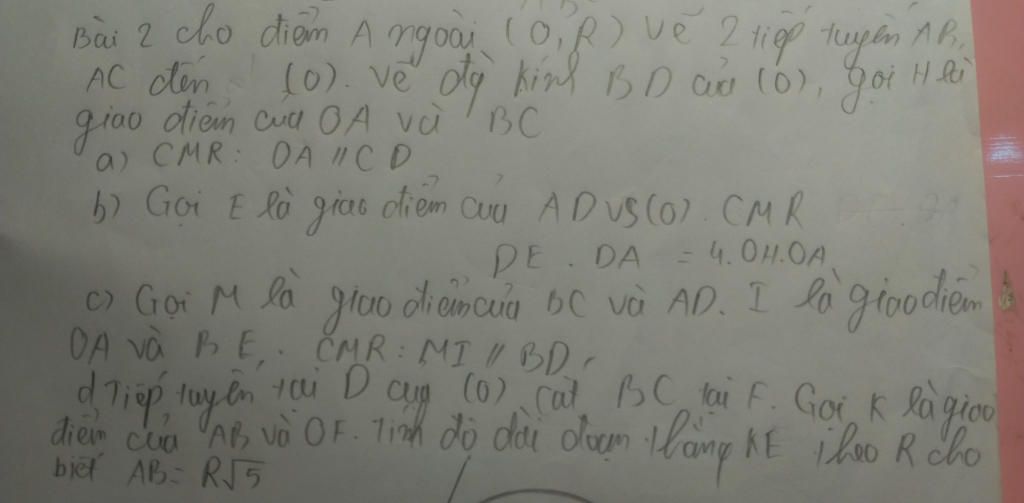 Bài 2 cho điểm A ngoài (O,R) vẽ 2 tiếp tuyến AB,
AC đến (O). Vẽ đg kính BD của (O), gọi H là
giao điểm của OA và BC
a) CMR: OA // CD
b) Gọi E là giao điểm của AD vs (O). CMR
DE . DA = 4.OH.OA
c) Gọi M là giao điểm của BC và AD. I là giao điểm
OA và BE,. CMR: MI // BD,
d Tiếp tuyến tại D của (O) cắt BC tại F. Gọi K là giao
điểm của AB và OF. Tính độ dài đoạn thẳng KE theo R cho
biết AB = R√5